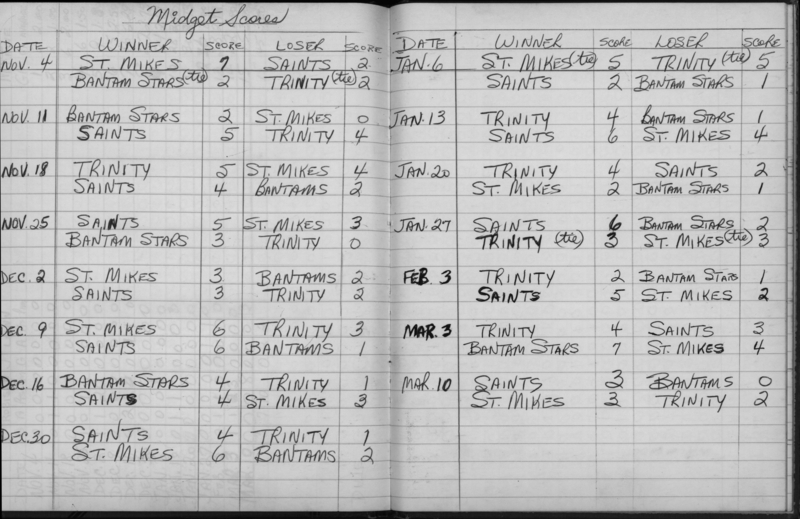 Midget Scores
DATE WINNER SCORE LOSER SCORE
NOV. 4 ST. MIKES 7 SAINTS 2
BANTAM STARS (tie) 2 TRINITY (tie) 2
NOV. 11 BANTAM STARS 2 ST. MIKES 0
SAINTS 5 TRINITY 4
NOV. 18 TRINITY 5 ST. MIKES 4
SAINTS 4 BANTAMS 2
NOV. 25 SAINTS 5 ST. MIKES 3
BANTAM STARS 3 TRINITY 0
DEC. 2 ST. MIKES 3 BANTAMS 2
SAINTS 3 TRINITY 2
DEC. 9 ST. MIKES 6 TRINITY 3
SAINTS 6 BANTAMS 1
DEC. 16 BANTAM STARS 4 TRINITY 1
SAINTS 4 ST. MIKES 3
DEC. 30 SAINTS 4 TRINITY 1
ST. MIKES 6 BANTAMS 2
DATE WINNER SCORE LOSER SCORE
JAN. 6 ST. MIKES (tie) 5 TRINITY (tie) 5
SAINTS 2 BANTAM STARS 1
JAN. 13 TRINITY 4 BANTAM STARS 1
SAINTS 6 ST. MIKES 4
JAN. 20 TRINITY 4 SAINTS 2
ST. MIKES 2 BANTAM STARS 1
JAN. 27 SAINTS 6 BANTAM STARS 2
TRINITY (tie) 3 ST. MIKES (tie) 3
FEB. 3 TRINITY 2 BANTAM STARS 1
SAINTS 5 ST. MIKES 2
MAR. 3 TRINITY 4 SAINTS 3
BANTAM STARS 7 ST. MIKES 4
MAR. 10 SAINTS 3 BANTAMS 0
ST. MIKES 3 TRINITY 2